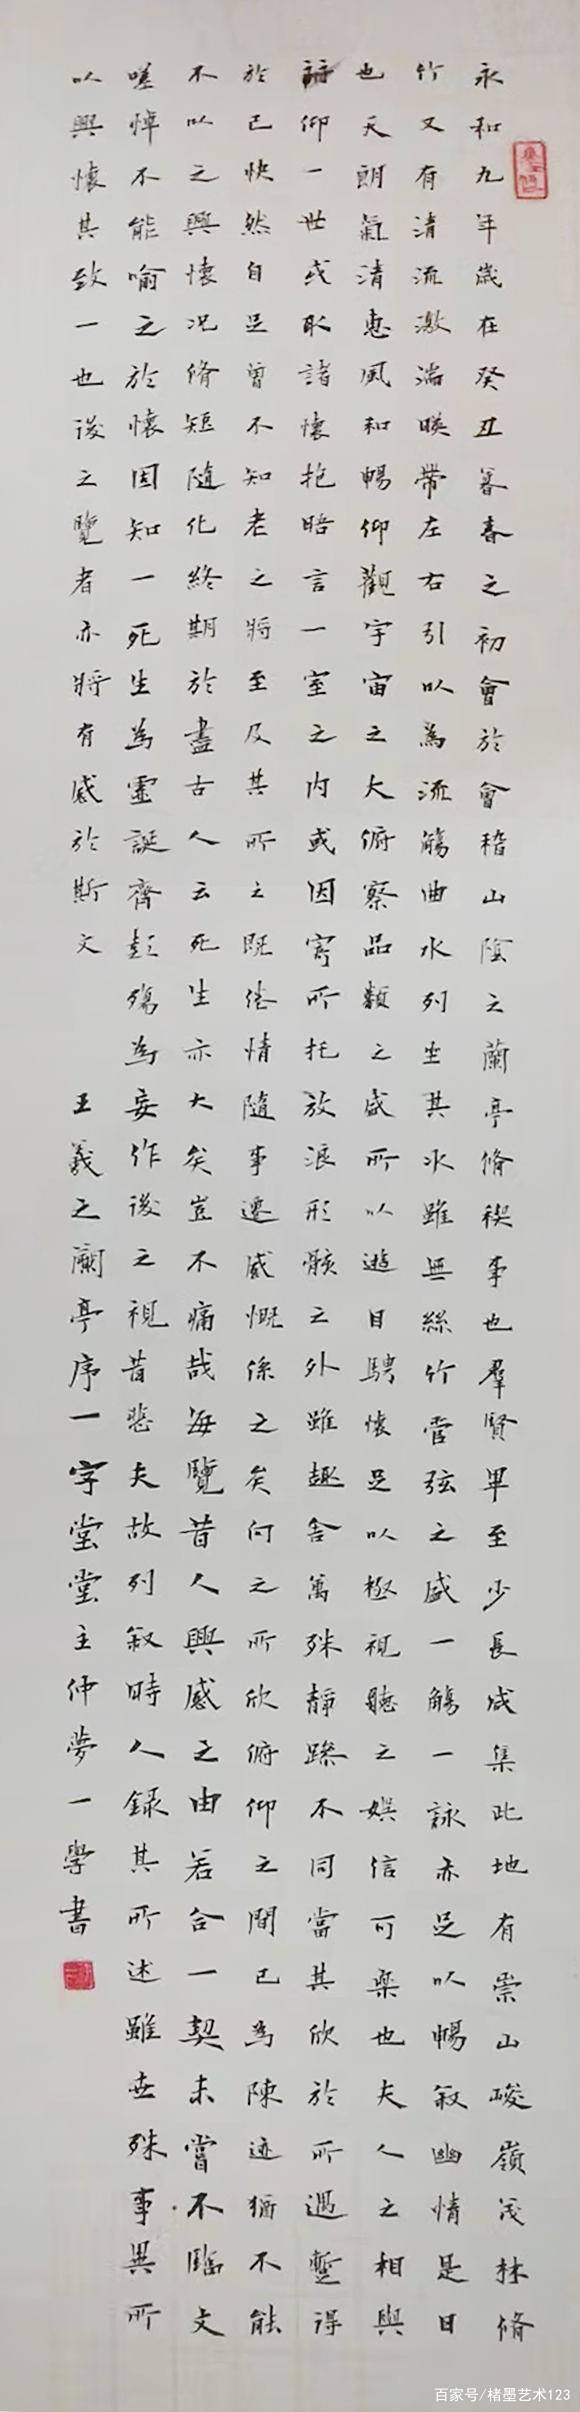 永和九年歲在癸丑暮春之初會於會稽山陰之蘭亭脩禊事也羣賢畢至少長咸集此地有崇山峻嶺茂林脩
竹又有清流激湍暎帶左右引以為流觴曲水列坐其次雖無絲竹管弦之盛一觴一詠亦足以暢敘幽情是日
也天朗氣清惠風和暢仰觀宇宙之大俯察品類之盛所以遊目騁懷足以極視聽之娛信可樂也夫人之相與
仰一世或取諸懷抱晤言一室之內或因寄所托放浪形骸之外雖趣舍萬殊靜躁不同當其欣於所遇蹔得
於己快然自足曾不知老之將至及其所之既倦情隨事遷感慨係之矣向之所欣俯仰之間已為陳迹猶不能
不以之興懷況脩短隨化終期於盡古人云死生亦大矣豈不痛哉每覽昔人興感之由若合一契未嘗不臨文
嗟悼不能喻之於懷固知一死生為虛誕齊彭殤為妄作後之視昔悲夫故列敘時人錄其所述雖世殊事異所
以興懷其致一也後之覽者亦將有感於斯文 王羲之蘭亭序一字堂堂主仲夢一學書
百家号/楮墨艺术123